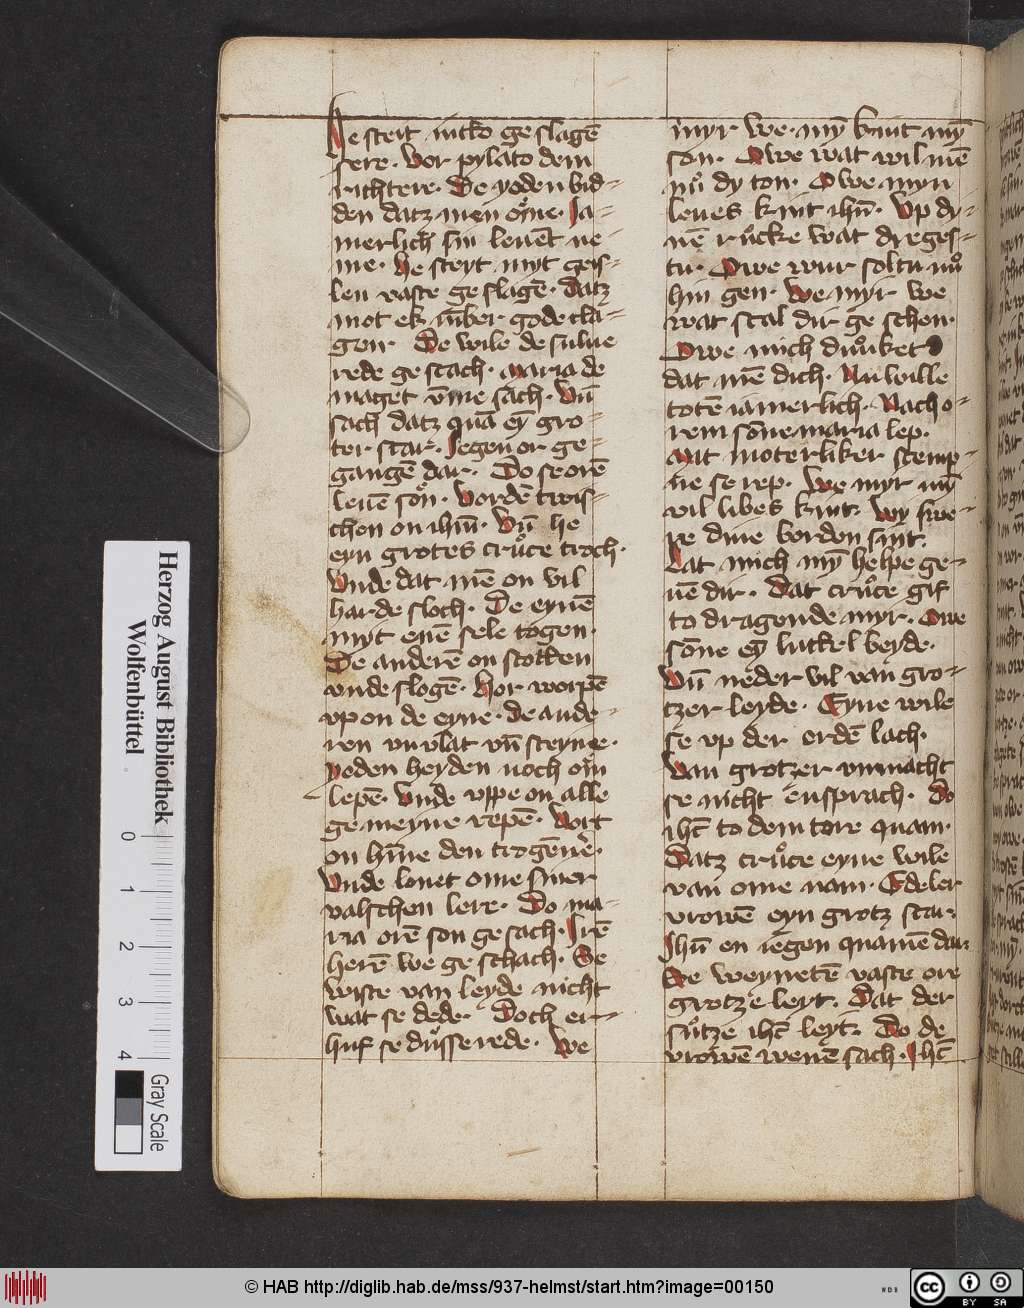 He steit nicko ge slagē
sere. vor pylato dem
richtere. De yoden bid-
den datz men ome. Ja-
merlich sin leuēt ne-
me. he steyt myt geis-
len vaste ge slagē. datz
mot ek ūmber gode cla-
gen. De wile de sulue
rede ge scach. maria de
maget vm̄e sach. Vn̄
sach datz quā eȳ gro-
ter scar. Jegen or ge-
gangē dar. Do se orē
leuē son. vor dē twis-
chen on ihm̄. Vn̄ he
eyn grotes cruͦce troch.
Vnde dat mē on vil
harde sloch. De eynē
myt enē sele togen.
De anderē on stotken
vnde slogē. Hor worpē
vp on de eyne. de ande-
ren vnvlat vn̄ steyne.
yoden heyden noch om
lepē. Vnde vppe on alle
ge meyne repē. Wort
on hin̄e den trogenēr.
Vnde lonet ome siner
valschen lere. Do ma-
ria orē son ge sach. Irē
herē we ge schach. Se
wiste van leyde nicht
wat se dede. Doch er-
huf se duͦsse rede. We
myr we. mȳ kint mȳ
son. Owe wat wil mē
nuͦ dy ton. Owe myn
leues kint ihū. Vp dy-
nē ruͦcke wat dreges-
tu. Owe wur soltu nuͦ
hin gen. We myr we
wat scal dir ge schen.
Owe mich duͦnket
dat mē dich. Nu wille
totē iamerlich. Nach o-
rem son̄e maria lep.
Mit moterliker stemp-
ne se rep. We myr mȳ
vil libes kint. Wy swe-
re dine borden sint.
Lat mich mȳ helpe ge-
uē dir. Dat cruͦce gif
to dragende myr. Owe
son̄e eȳ luttkel beyde.
Vn̄ neder vil van gro-
tzer leyde. Eyne wile
se vp der ordē lach.
Van grotzer vnmacht
se nicht ensprach. Do
ihc̄ to dem tore quam.
Datz cruͦce eyne wile
van ome nam. Edeler
vrowē eyn grotz scar.
Jhū en iegen quamē dar
Se weynetē vaste ore
grotze leyt. Dat der
suͦtze ihc̄ leyt. Do de
vrowē wenē sach. Jhc̄
Herzog August Bibliothek
Wolfenbüttel
0 1 2 3 4
Gray Scale
© HAB http://diglib.hab.de/mss/937-helmst/start.htm?image=00150
WDB
cc BY SA